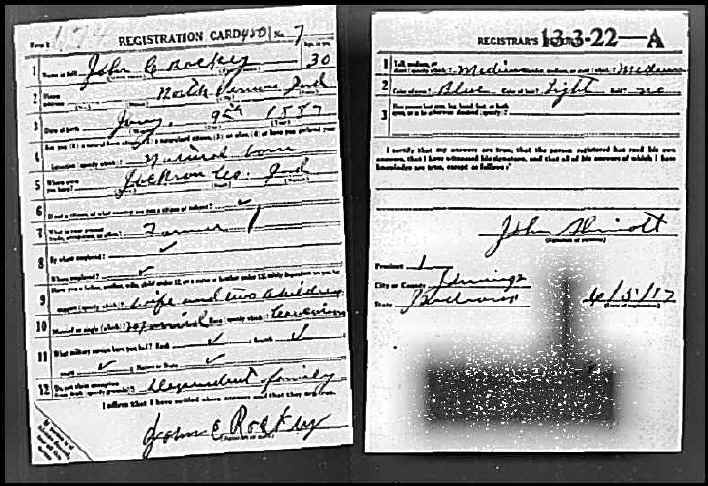 Form 1 1174 REGISTRATION CARD No. 7
Age, in yrs
1 Name in full John C Rockey 30
2 Home address North Vernon Ind
3 Date of birth Jany. 9th 1887
4 Are you (1) a natural born citizen, (2) a naturalized citizen, (3) an alien, (4) or have you declared your
intention (specify which)? Natural born
5 Where were you born? Jackson Co. Ind
6 If not a citizen, of what country are you a citizen or subject?
7 What is your present trade, occupation, or office? Farmer
8 By whom employed?
Where employed?
9 Have you a father, mother, wife, child under 12, or a sister or brother under 12, solely dependent on you for
support (specify which)? Wife and two children
10 Married or single (which)? Married Race (specify which)? Caucasian
11 What military service have you had? Rank
Branch
years Nation or State
12 Do you claim exemption from draft (specify grounds)? Dependent family
I affirm that I have verified above answers and that they are true.
John C Rockey
(Signature or mark)
REGISTRAR'S 13-3-22-A
1 Tall, medium, or short (specify which)? Medium Slender, medium, or stout (which)? Medium
2 Color of eyes? Blue Color of hair? Light Bald? no
3 Has person lost arm, leg, hand, foot, or both
eyes, or is he otherwise disabled (specify)?
I certify that my answers are true, that the person registered has read his own
answers, that I have witnessed his signature, and that all of his answers of which I have
knowledge are true, except as follows:
John
(Signature of registrar)
Precinct 1
City or County Jennings
State Indiana 6/5/17
(Date of registration)